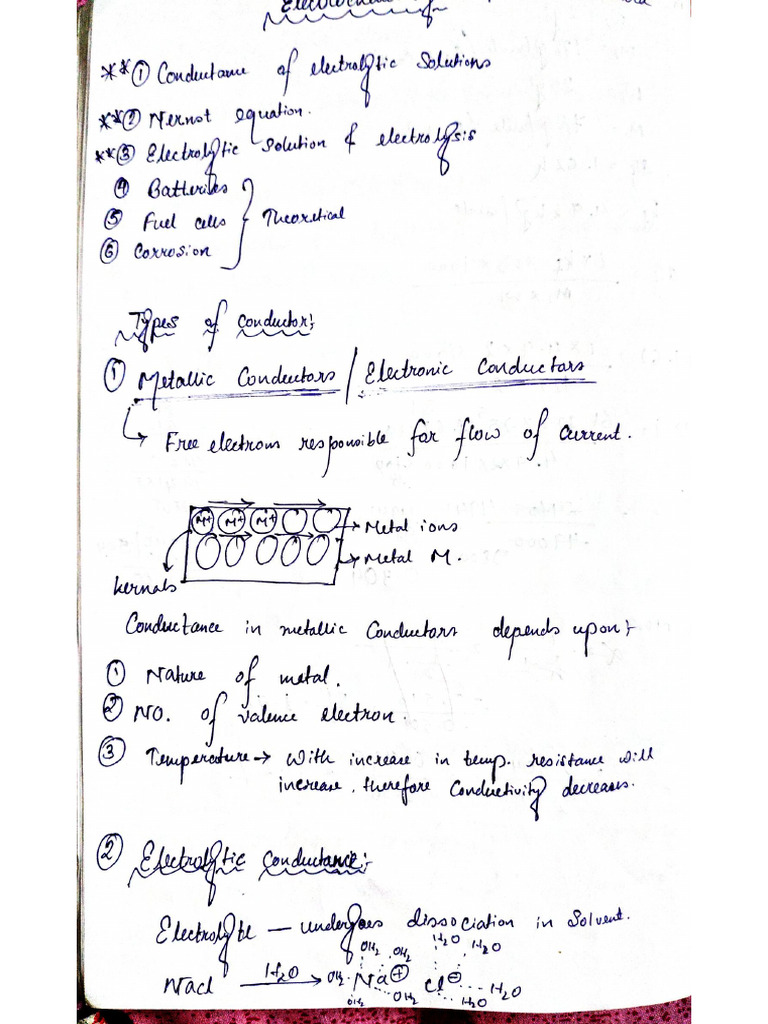 **① Conductance of electrolytic Solutions
**② Nernst equation.
**③ Electrolytic Solution & electrolysis
④ Batteries
⑤ Fuel cells } Theoretical
⑥ Corrosion
Types of conductor:-
① Metallic Conductors / Electronic Conductors
↳ Free electrons responsible for flow of current.
M+ M+ M+ → Metal ions
→ Metal M.
kernals
Conductance in metallic Conductors depends upon:-
① Nature of metal.
② NO. of valence electron.
③ Temperature → With increase in temp. resistance will
increase, therefore Conductivity decreases.
② Electrolytic Conductance:-
Electrolyte — undergoes dissociation in Solvent.
OH2 OH2 H2O H2O
NaCl H2O → OH2 Na⊕ Cl⊖ H2O
OH2 OH2 H2O